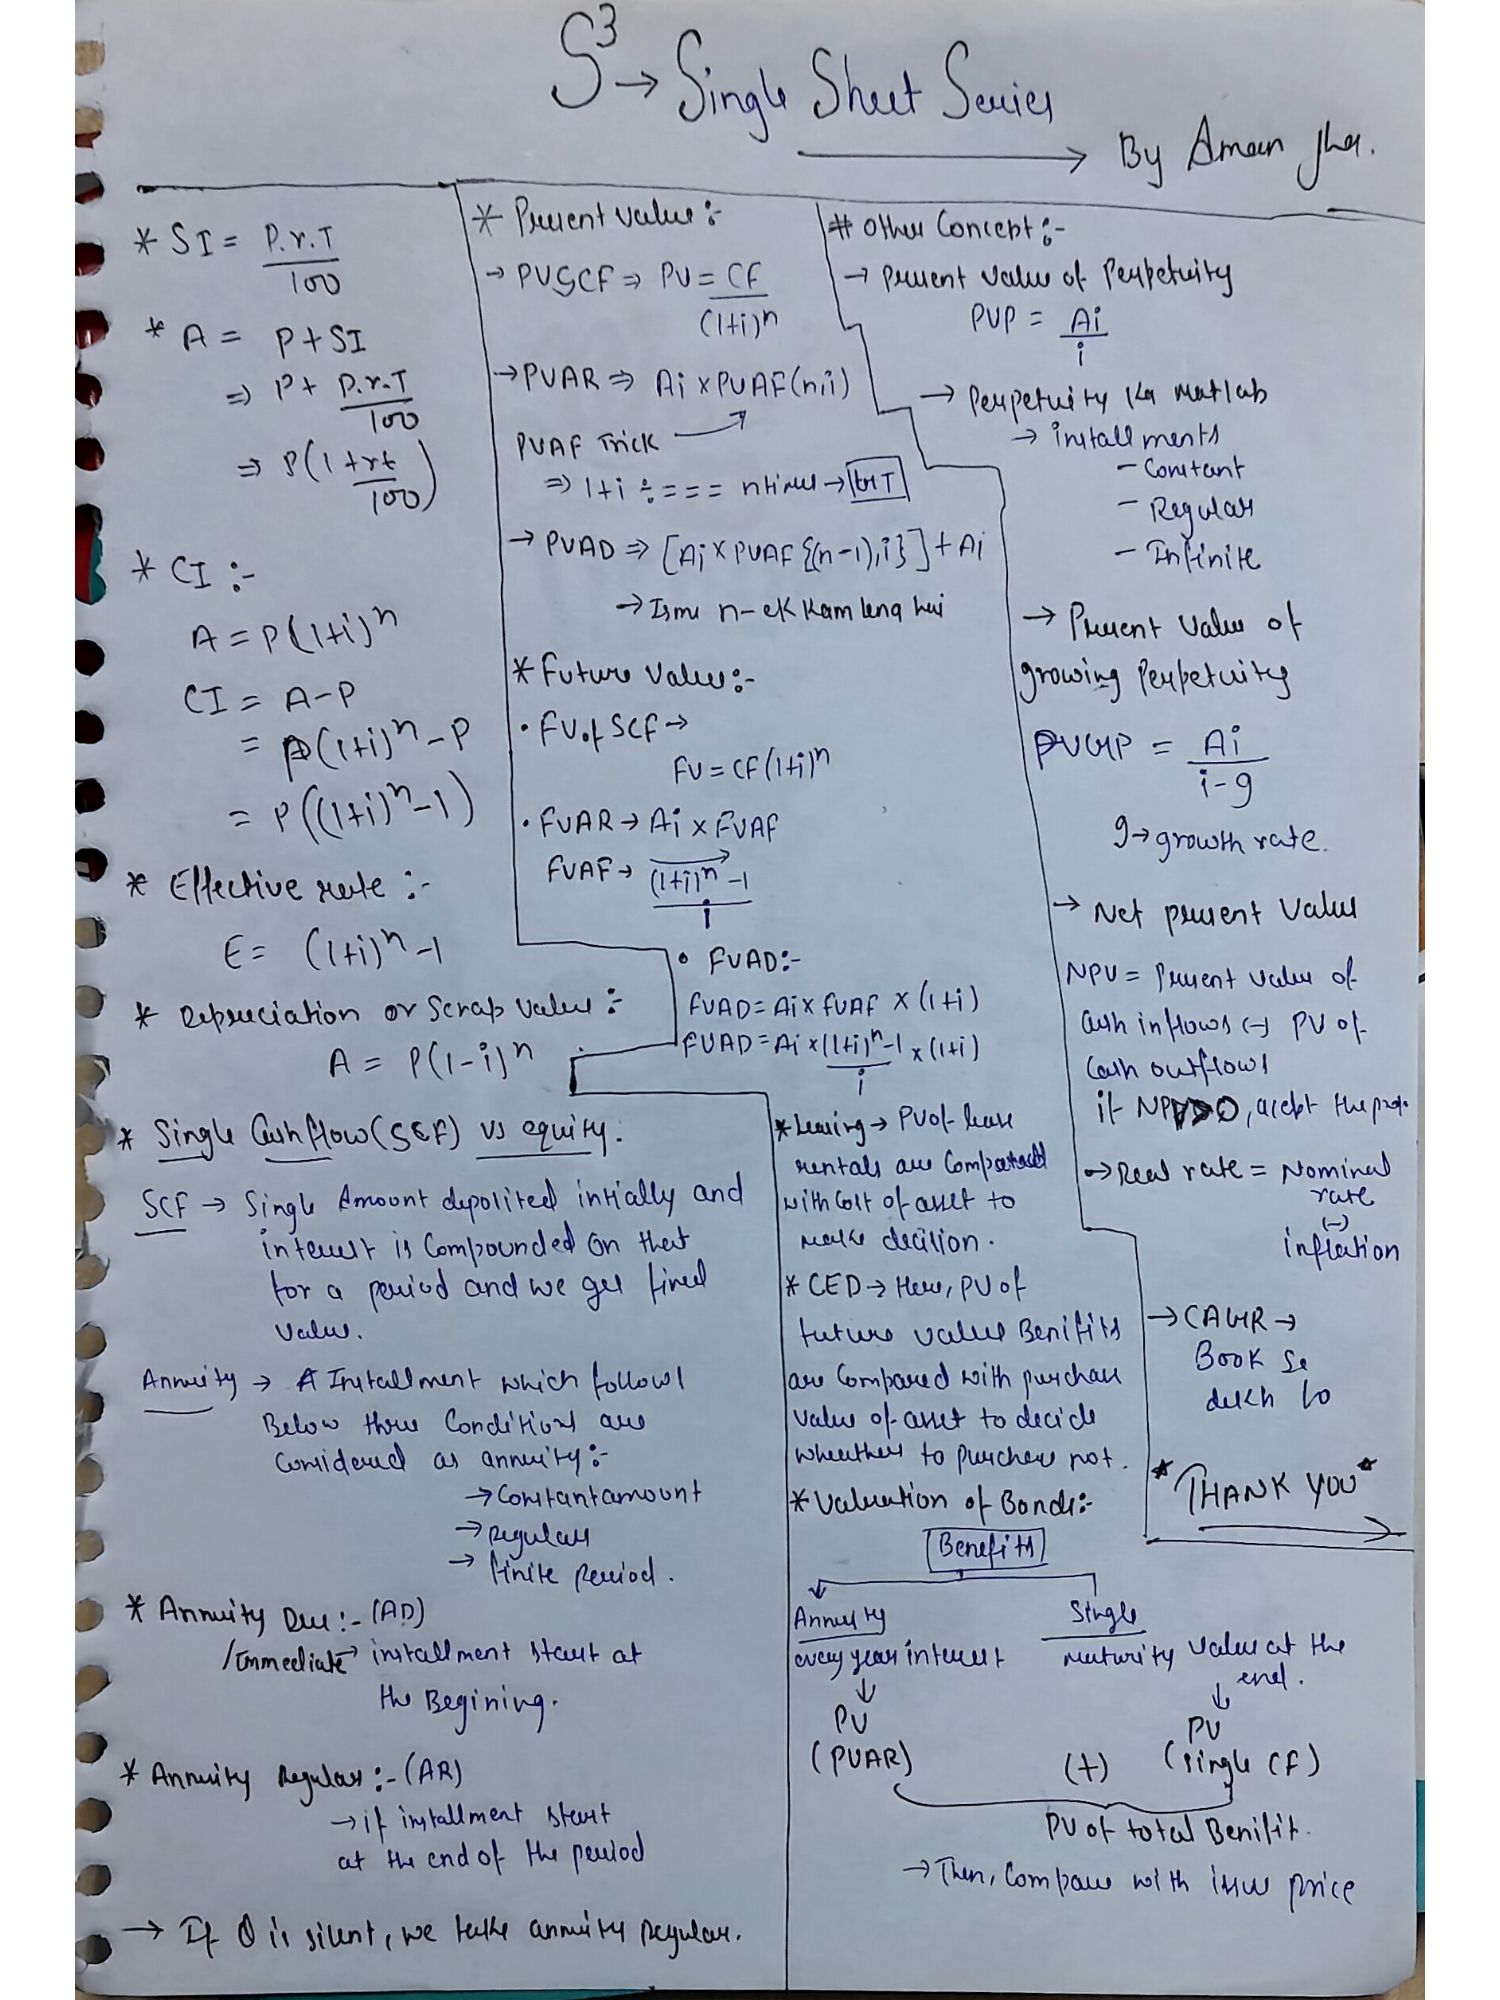 S³ → Single Sheet Series
By Aman Jha.
* SI = P.r.T
100
* A = P + SI
⇒ P + P.r.T
100
⇒ P(1 + rt
100)
* CI :-
A = P(1+i)ⁿ
CI = A-P
= P(1+i)ⁿ - P
= P((1+i)ⁿ-1)
* Effective rate :-
E = (1+i)ⁿ-1
* Depreciation or Scrap Value :-
A = P(1-i)ⁿ
* Single Cashflow (SCF) vs equity.
SCF → Single Amount deposited intially and
interest is Compounded on that
for a period and we get fixed
Value.
Annuity → A Installment which follows
Below three Conditions are
Considered as annuity :-
→ Constant amount
→ Regular
→ finite Period.
* Annuity Due :- (AD)
/Immediate → installment start at
the Begining.
* Annuity Regular :- (AR)
→ if installment start
at the end of the period
→ If Q is silent, we take annuity Regular.
* Present value :-
→ PVSCF ⇒ PV = CF
(1+i)ⁿ
→ PVAR ⇒ Ai x PVAF(n,i)
PVAF Trick
⇒ 1+i ÷ = = = n times → GT
→ PVAD ⇒ [Ai x PVAF {(n-1), i}] + Ai
→ Isme n-ek kam leng hai
* Future Value :-
• FV of SCF →
FV = CF(1+i)ⁿ
• FVAR → Ai x FVAF
FVAF → (1+i)ⁿ - 1
i
• FVAD :-
FVAD = Ai x FVAF x (1+i)
FVAD = Ai x (1+i)ⁿ-1 x (1+i)
i
* Leasing → PV of lease
rentals are Compared
with Cost of asset to
make decision.
* CED → Here, PV of
future value Benifits
are Compared with purchase
value of asset to decide
wheather to purchase not.
* Valuation of Bonds :-
Benefits
Annuity
every year interest
↓
PV
(PVAR)
(+)
Single
maturity value at the
end.
↓
PV
(single CF)
PV of total Benifit.
→ Then, Compare with issue price
# Other Concept :-
→ Present Value of Perpetuity
PVP = Ai
i
→ Perpetuity Ka Matlab
→ installments
- Constant
- Regular
- Infinite
→ Present Value of
growing Perpetuity
PVGP = Ai
i-g
g → growth rate.
→ Net present Value
NPV = Present value of
Cash inflows (-) PV of
Cash outflows
if NPV>0, accept the
→ Real rate = Nominal
rate
(-)
inflation
→ CAGR →
Book se
dekh lo
* THANK YOU *